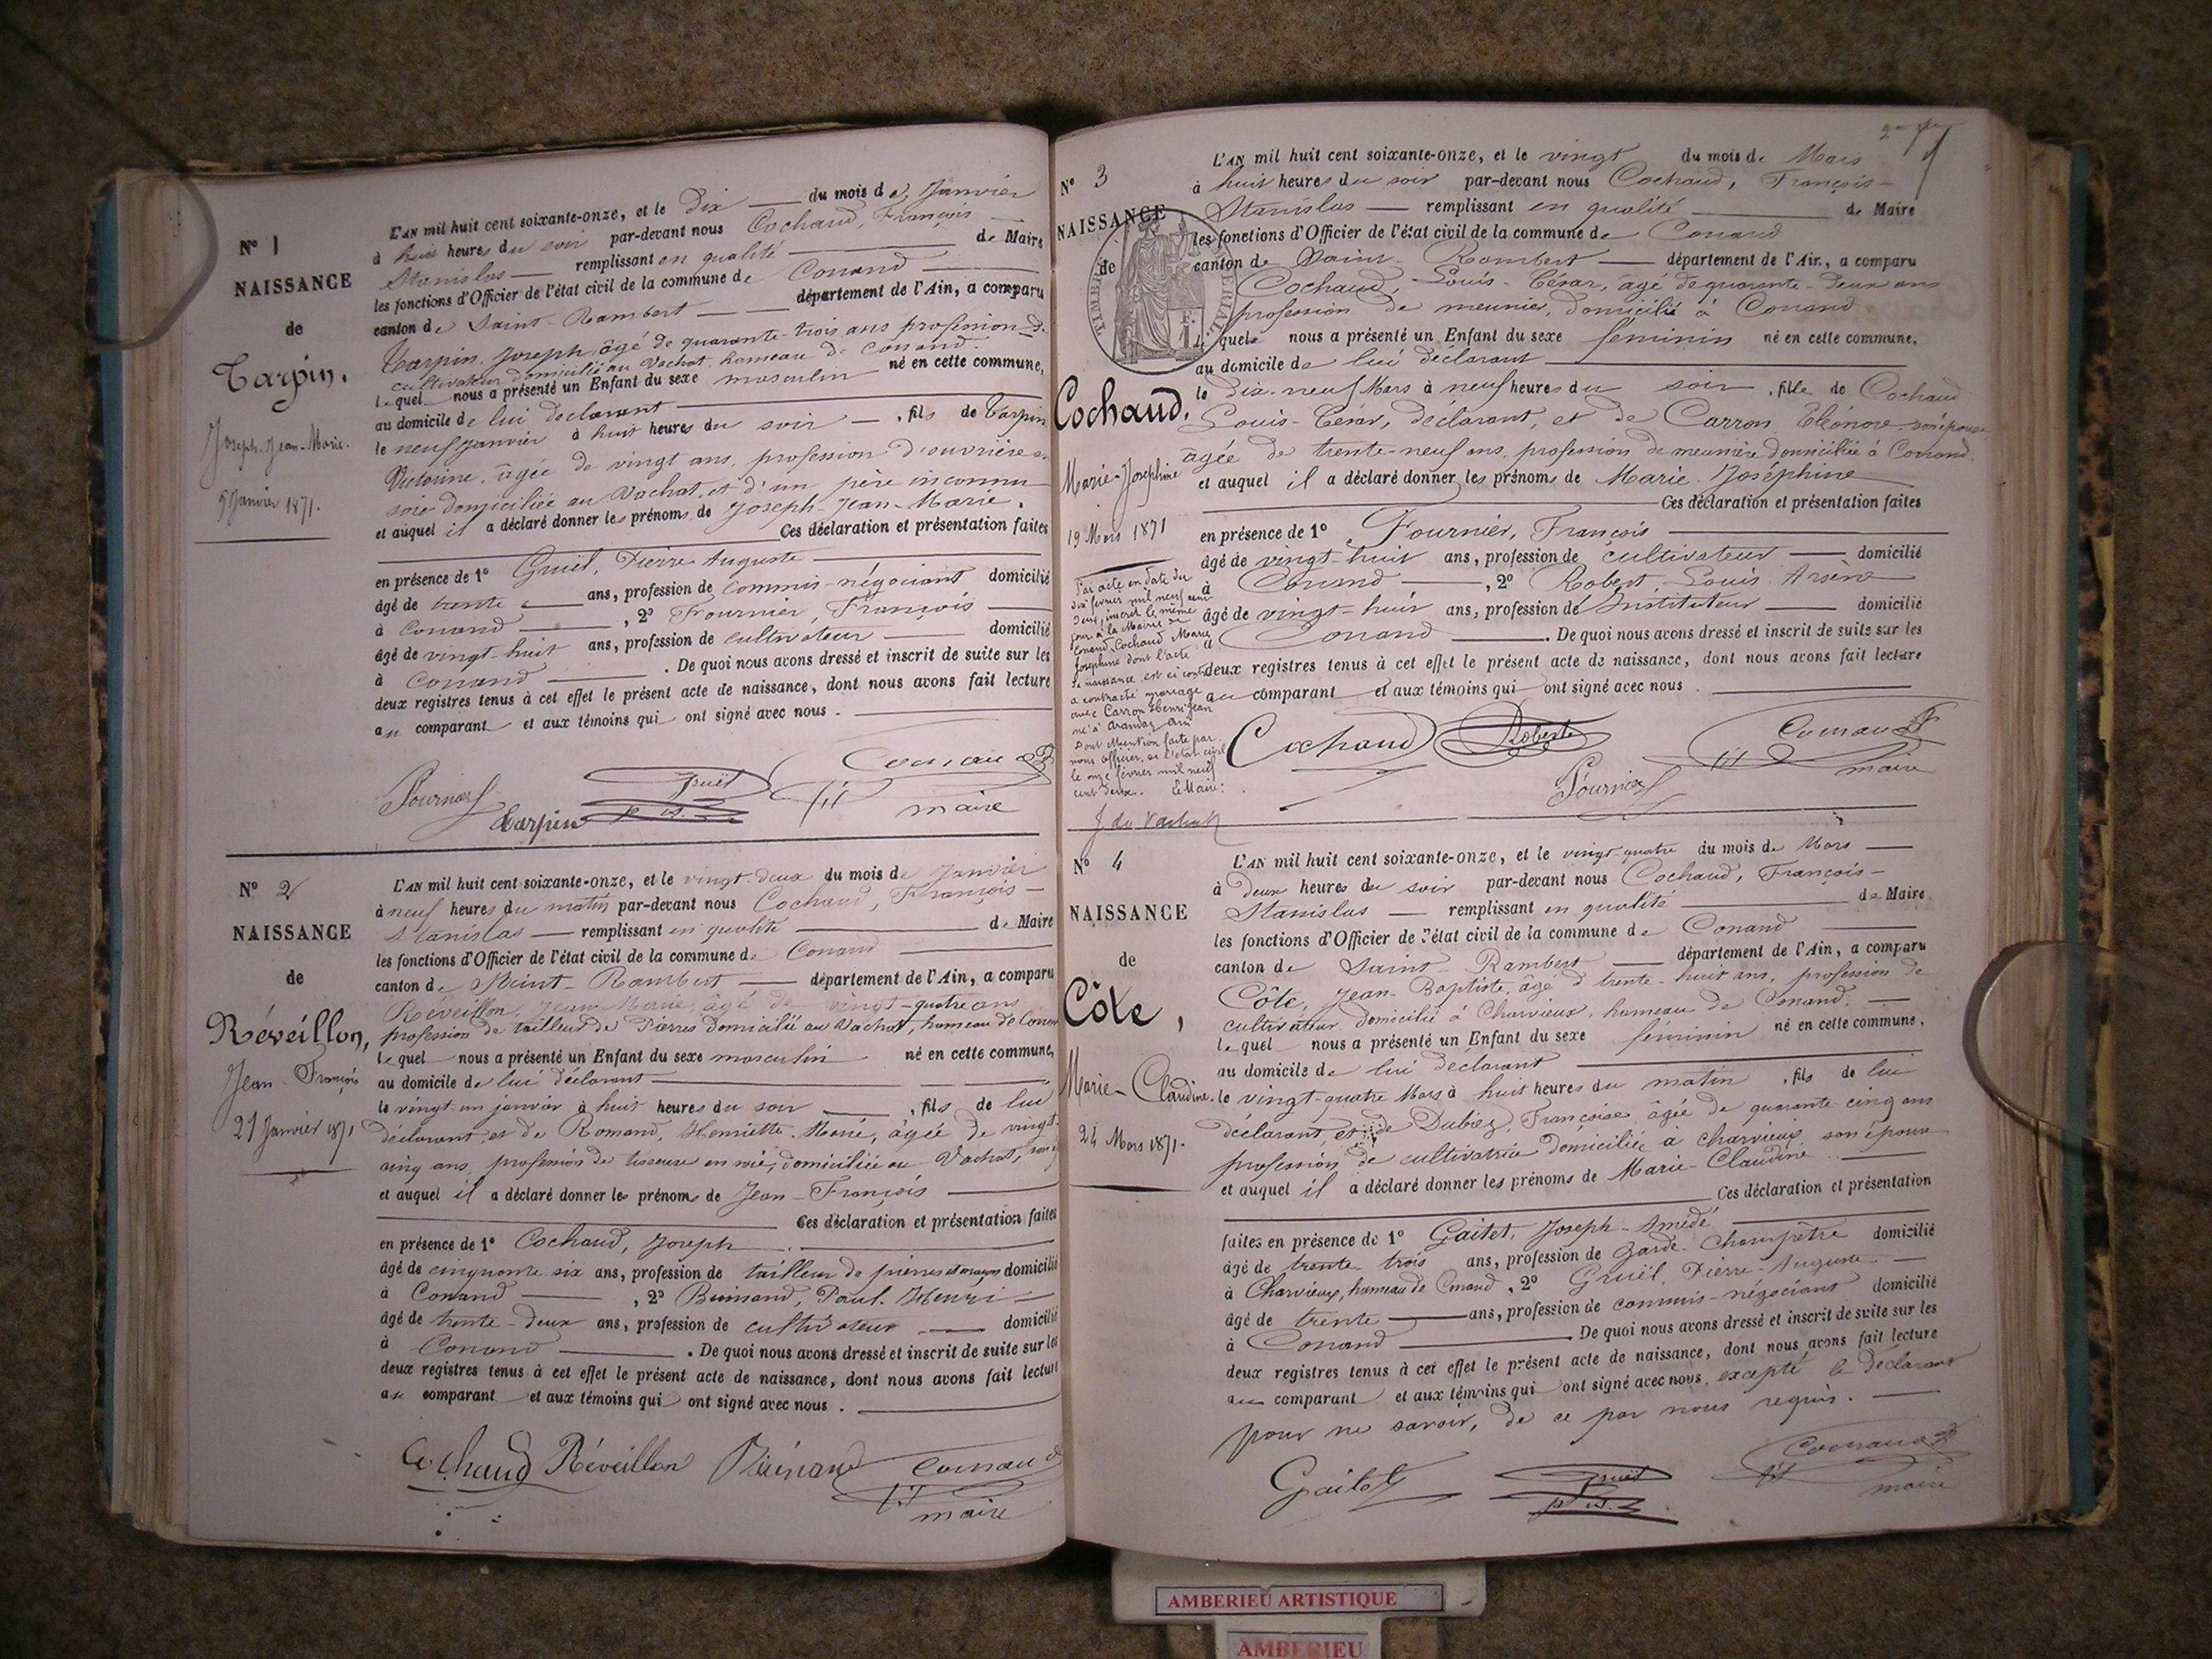 N° 1
NAISSANCE
de
Tarpin,
Joseph-Jean-Marie.
9 Janvier 1871.
L'AN mil huit cent soixante-onze, et le dix du mois de Janvier
à huit heures du soir par-devant nous Cochaud, François
Stanislas remplissant en qualité de Maire
les fonctions d'Officier de l'état civil de la commune de Conand
canton de Saint-Rambert département de l'Ain, a comparu
Tarpin, Joseph, âgé de quarante-trois ans profession de
cultivateur domicilié au Vachat, hameau de Conand.
lequel nous a présenté un Enfant du sexe masculin né en cette commune,
au domicile de lui déclarant
le neuf Janvier à huit heures du soir, fils de Tarpin
Victorine, âgée de vingt ans, profession d'ouvrière en
soie domiciliée au Vachat, et d'un père inconnu
et auquel il a déclaré donner les prénoms de Joseph-Jean-Marie.
Ces déclaration et présentation faites
en présence de 1° Gruël, Pierre Auguste
âgé de trente ans, profession de commis-négociant domicilié
à Conand, 2° Fournier, François
âgé de vingt-huit ans, profession de cultivateur domicilié
à Conand. De quoi nous avons dressé et inscrit de suite sur les
deux registres tenus à cet effet le présent acte de naissance, dont nous avons fait lecture
au comparant et aux témoins qui ont signé avec nous.
Fournier Tarpin Gruël
maire
N° 2
NAISSANCE
de
Réveillon,
Jean-François
21 Janvier 1871
L'AN mil huit cent soixante-onze, et le vingt-deux du mois de Janvier
à neuf heures du matin par-devant nous Cochaud, François-
Stanislas remplissant en qualité de Maire
les fonctions d'Officier de l'état civil de la commune de Conand
canton de Saint-Rambert département de l'Ain, a comparu
Réveillon, Jean Marie, âgé de vingt-quatre ans
profession de tailleur de Pierres domicilié au Vachat, hameau de Conand
lequel nous a présenté un Enfant du sexe masculin né en cette commune,
au domicile de lui déclarant
le vingt-un janvier à huit heures du soir, fils de lui
déclarant et de Romand, Henriette Marie, âgée de vingt-
cinq ans, profession de tisseuse en soie, domiciliée au Vachat, son
et auquel il a déclaré donner les prénoms de Jean-François
Ces déclaration et présentation faites
en présence de 1° Cochaud, Joseph
âgé de cinquante six ans, profession de tailleur de pierres et maçon domicilié
à Conand, 2° Paul-Henri
âgé de trente-deux ans, profession de cultivateur domicilié
à Conand. De quoi nous avons dressé et inscrit de suite sur les
deux registres tenus à cet effet le présent acte de naissance, dont nous avons fait lecture
au comparant et aux témoins qui ont signé avec nous.
Cochaud Réveillon
maire
N° 3
NAISSANCE
de
Cochaud,
Marie-Joséphine
19 Mars 1871
Par acte en date du
dix février mil neuf cent
deux, inscrit le même
jour à la Mairie de
Conand, Cochaud Marie
Joséphine dont l'acte
de naissance est ci contre
a contracté mariage
avec Carron Henri Jean
né à Arandas Ain
Dont Mention faite par
nous Officier de l'état civil
le onze février mil neuf
cent deux. Le Maire:
L'AN mil huit cent soixante-onze, et le vingt du mois de Mars
à huit heures du soir par-devant nous Cochaud, François-
Stanislas remplissant en qualité de Maire
les fonctions d'Officier de l'état civil de la commune de Conand
canton de Saint-Rambert département de l'Ain, a comparu
Cochaud, Louis-César, âgé de quarante-deux ans
profession de meunier, domicilié à Conand
lequel nous a présenté un Enfant du sexe féminin né en cette commune,
au domicile de lui déclarant
le dix-neuf Mars à neuf heures du soir, fille de Cochaud
Louis-César, déclarant, et de Carron Eléonore son épouse
âgée de trente-neuf ans, profession de meunière domiciliée à Conand.
et auquel il a déclaré donner les prénoms de Marie-Joséphine
Ces déclaration et présentation faites
en présence de 1° Fournier, François
âgé de vingt-huit ans, profession de cultivateur domicilié
à Conand, 2° Robert Louis Arsène
âgé de vingt-huit ans, profession de Instituteur domicilié
à Conand. De quoi nous avons dressé et inscrit de suite sur les
deux registres tenus à cet effet le présent acte de naissance, dont nous avons fait lecture
au comparant et aux témoins qui ont signé avec nous.
Cochaud Robert
Fournier maire
N° 4
NAISSANCE
de
Côte,
Marie-Claudine.
24 Mars 1871.
L'AN mil huit cent soixante-onze, et le vingt-quatre du mois de Mars
à deux heures du soir par-devant nous Cochaud, François-
Stanislas remplissant en qualité de Maire
les fonctions d'Officier de l'état civil de la commune de Conand
canton de Saint-Rambert département de l'Ain, a comparu
Côte, Jean-Baptiste, âgé d trente-huit ans, profession de
cultivateur domicilié à Charvieux, hameau de Conand.
lequel nous a présenté un Enfant du sexe féminin né en cette commune,
au domicile de lui déclarant
le vingt-quatre Mars à huit heures du matin, fils de lui
déclarant et de Dubiez, Françoise âgée de quarante-cinq ans
profession de cultivatrice domiciliée à Charvieux, son épouse
et auquel il a déclaré donner les prénoms de Marie-Claudine
Ces déclaration et présentation
faites en présence de 1° Gaitet, Joseph-Amédé
âgé de trente-trois ans, profession de Garde-Champêtre domicilié
à Charvieux, hameau de Conand, 2° Gruël, Pierre-Auguste
âgé de trente ans, profession de commis-négociant domicilié
à Conand. De quoi nous avons dressé et inscrit de suite sur les
deux registres tenus à cet effet le présent acte de naissance, dont nous avons fait lecture
au comparant et aux témoins qui ont signé avec nous, excepté le déclarant
pour ne savoir, de ce par nous requis.
Gaitet Gruël
maire
AMBERIEU ARTISTIQUE
AMBERIEU